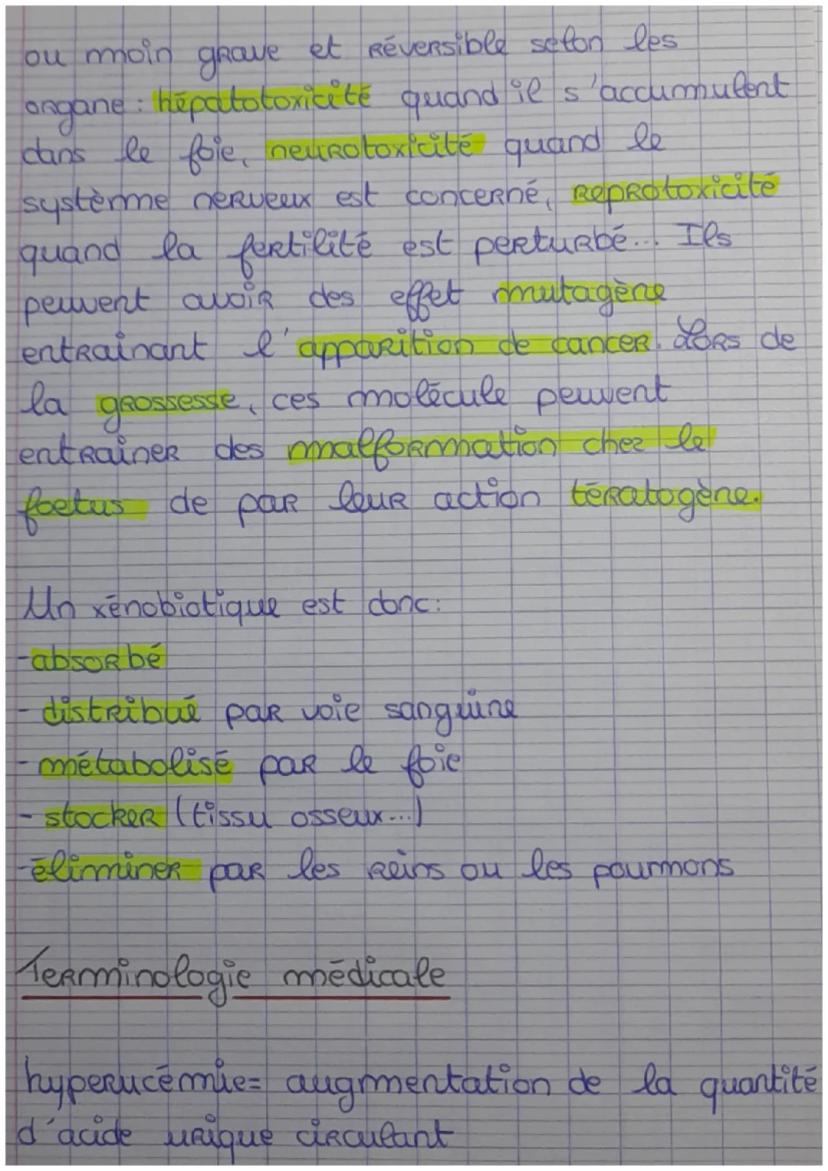 ou moin grave et réversible selon les
organe : hépatotoxicité quand il s'accummulent
dans le foie, neurotoxicité quand le
système nerveux est concerné, reprotoxicité
quand la fertilité est perturbé... Ils
peuvent avoir des effet mutagène
entrainant l'apparition de cancer. Lors de
la grossesse, ces molécule peuvent
entrainer des malformation chez le
foetus de par leur action tératogène.
Un xénobiotique est donc:
-absorbé
- distribué par voie sanguine
- métabolisé par le foie
- stocker (tissu osseux...)
-éliminer par les reins ou les poumons
Terminologie médicale
hyperucémie= augmentation de la quantité
d'acide urique circulant